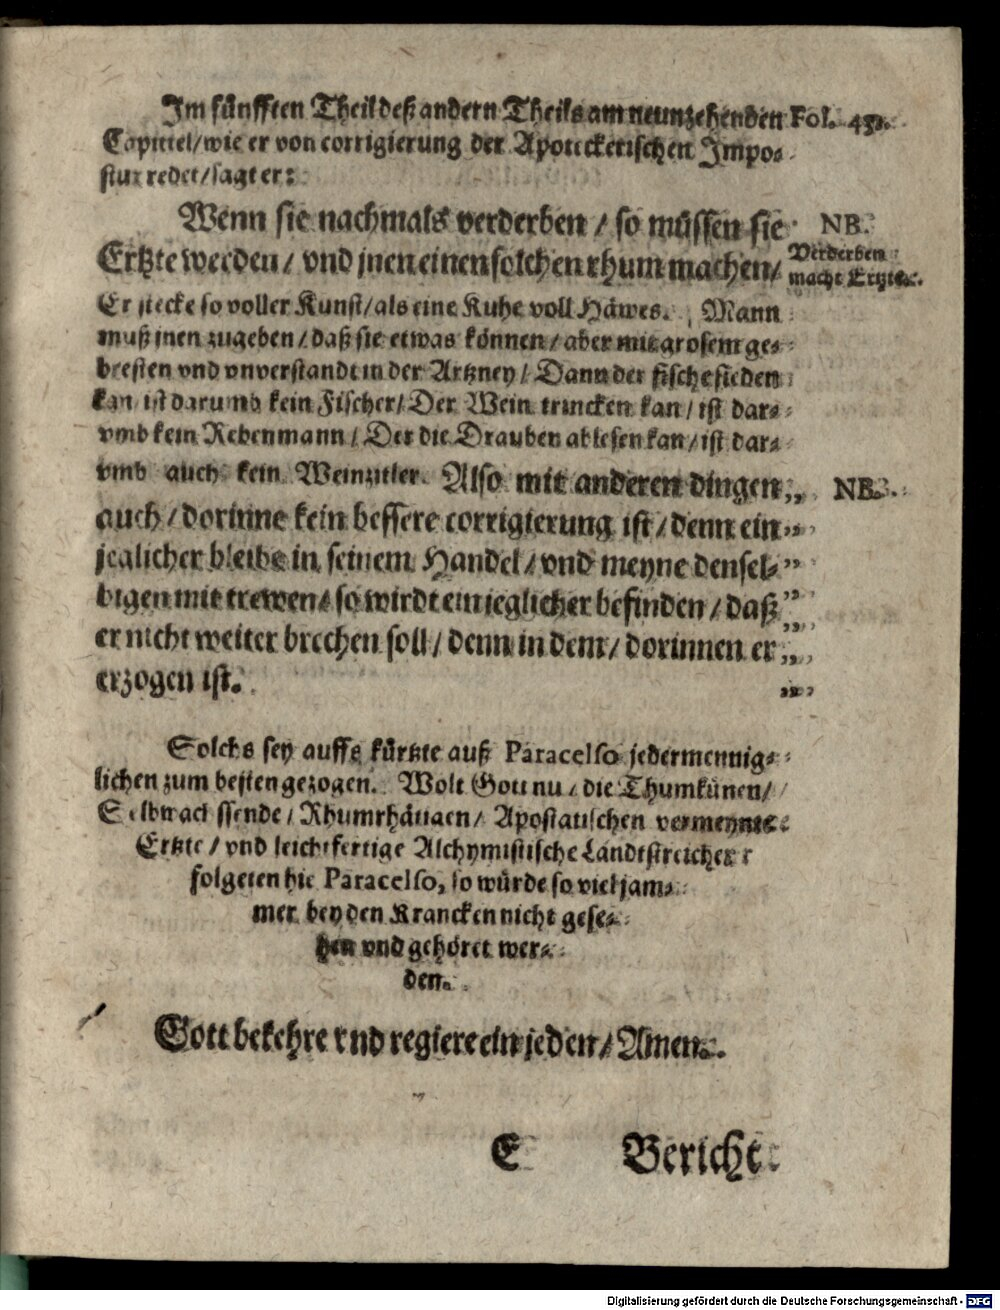 Im fünfften Theil deß andern Theils am neunzehenden Fol. 45.
Capittel/ wie er von corrigierung der Apoteckerischen Impo-
stur redet/ sagt er:
Wenn sie nachmals verderben / so müssen sie NB.
Ertzte werden/ vnd jnen einen solchen rhum machen/ Verderben
macht Ertzte.
Er stecke so voller Kunst/ als eine Kuhe voll Häwes. Mann
muß jnen zugeben / daß sie etwas können / aber mit grosem ge-
bresten vnd vnverstandt in der Artzney / Dann der fische sieden
kan ist darumb kein Fischer/ Der Wein trincken kan / ist dar-
vmb kein Rebenmann / Der die Drauben ablesen kan / ist dar-
vmb auch kein Weinzitler. Also mit anderen dingen „ NB.
auch / dorinne kein bessere corrigierung ist / denn ein „
jeglicher bleibe in seinem Handel / vnd meyne densel- „
bigen mit trewen / so wirdt ein jeglicher befinden / daß „
er nicht weiter brechen soll / denn in dem / dorinnen er „
erzogen ist. „
Solchs sey auffs kürtzte auß Paracelso jedermennig-
lichen zum besten gezogen. Wolt Gott nu / die Thumkünen/
Selbwachssende / Rhumrhätigen / Apostatischen vermeynte
Ertzte / vnd leichtfertige Alchymistische Landtstreicher
folgeten hie Paracelso, so würde so viel jam-
mer bey den Krancken nicht gese-
hen vnd gehöret wer-
den.
Gott bekehre vnd regiere ein jeden / Amen.
E Bericht
Digitalisierung gefördert durch die Deutsche Forschungsgemeinschaft - DFG